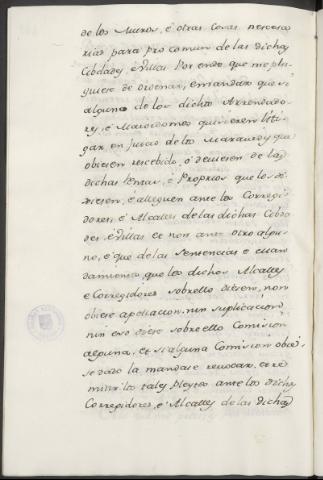 de los Muros, é otras Cosas necesa
rias para pro comun de las dichas
Cibdades é Villas Por ende que me plu
guiese de ordenar, emandar que si
algunos de los dichos Arrendado
res, é Maiordomos quisieren liti
gar en Juicio de los Maravedis que
obiesen rescebido, ó deviesen de las
dichas Rentas, é Proprios que lo di
xiesen, é alleguen ante los Corregi
dores, é Alcalles de las dichas Cibda
des é Villas et non ante otro algu
no, é que de las Sentencias é man
damientos, que los dichos Alcalles
e Corregidores sobrello diesen, non
obiese apellacion, nin suplicacion
nin eso diese sobre ello Comision
alguna, et si alguna Comision obie
se dado la mandase revocar, et re
mitir los tales Pleytos ante los dichos
Corregidores, é Alcalles de las dichas